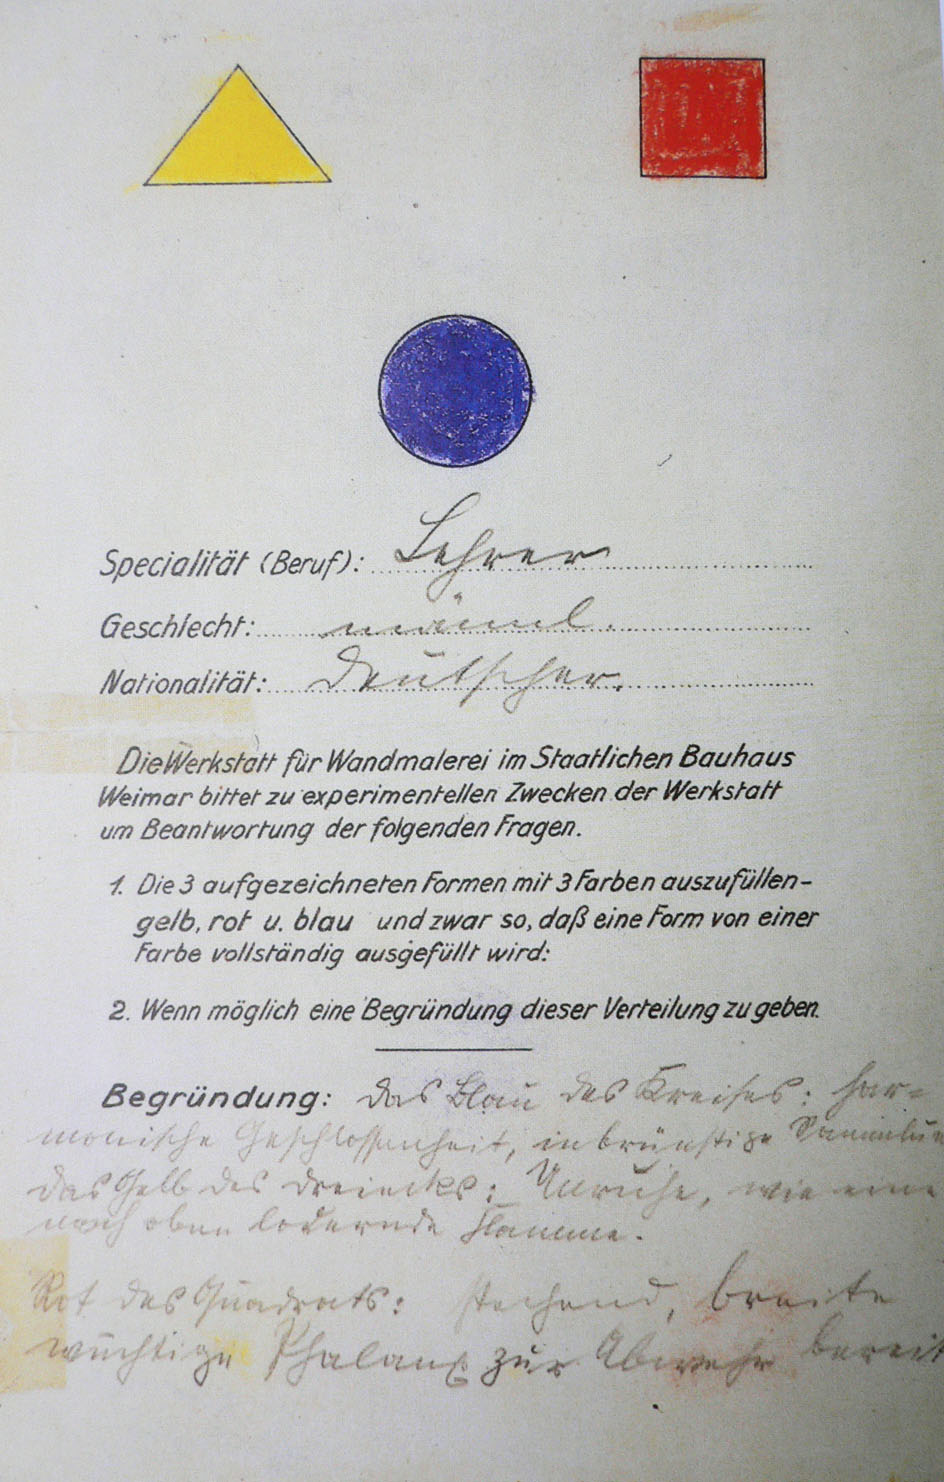 Specialität (Beruf): Lehrer
Geschlecht: männl.
Nationalität: Deutscher.
Die Werkstatt für Wandmalerei im Staatlichen Bauhaus
Weimar bittet zu experimentellen Zwecken der Werkstatt
um Beantwortung der folgenden Fragen.
1. Die 3 aufgezeichneten Formen mit 3 Farben auszufüllen-
gelb, rot u. blau und zwar so, daß eine Form von einer
Farbe vollständig ausgefüllt wird:
2. Wenn möglich eine Begründung dieser Verteilung zu geben.
Begründung: Das Blau des Kreises: har-
monische Geschlossenheit, inbrünstige
Das Gelb des Dreiecks: Unruhe, wie eine
nach oben lodernde Flamme.
Rot des Quadrats: stechend, breite
wuchtige Phalanx zur Abwehr bereit